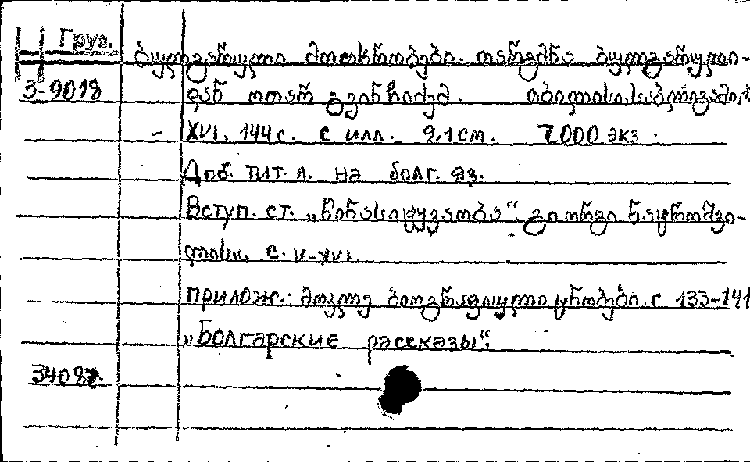 Груз.
ბულგარული მოთხრობები. თარგმნა ბულგარული-
3-9018 დან ოთარ გვინჩიძემ. თბილისი,
XVI, 144 с. с илл. 21 см. 7.000 экз.
Доб. тит. л. на болг. яз.
Вступ. ст. „წინასიტყვაობა“ გიორგი
с. V-XVI.
Прилож.: მოკლე ბიოგრაფიული ცნობები. с 133-141
„Болгарские рассказы“.
3408